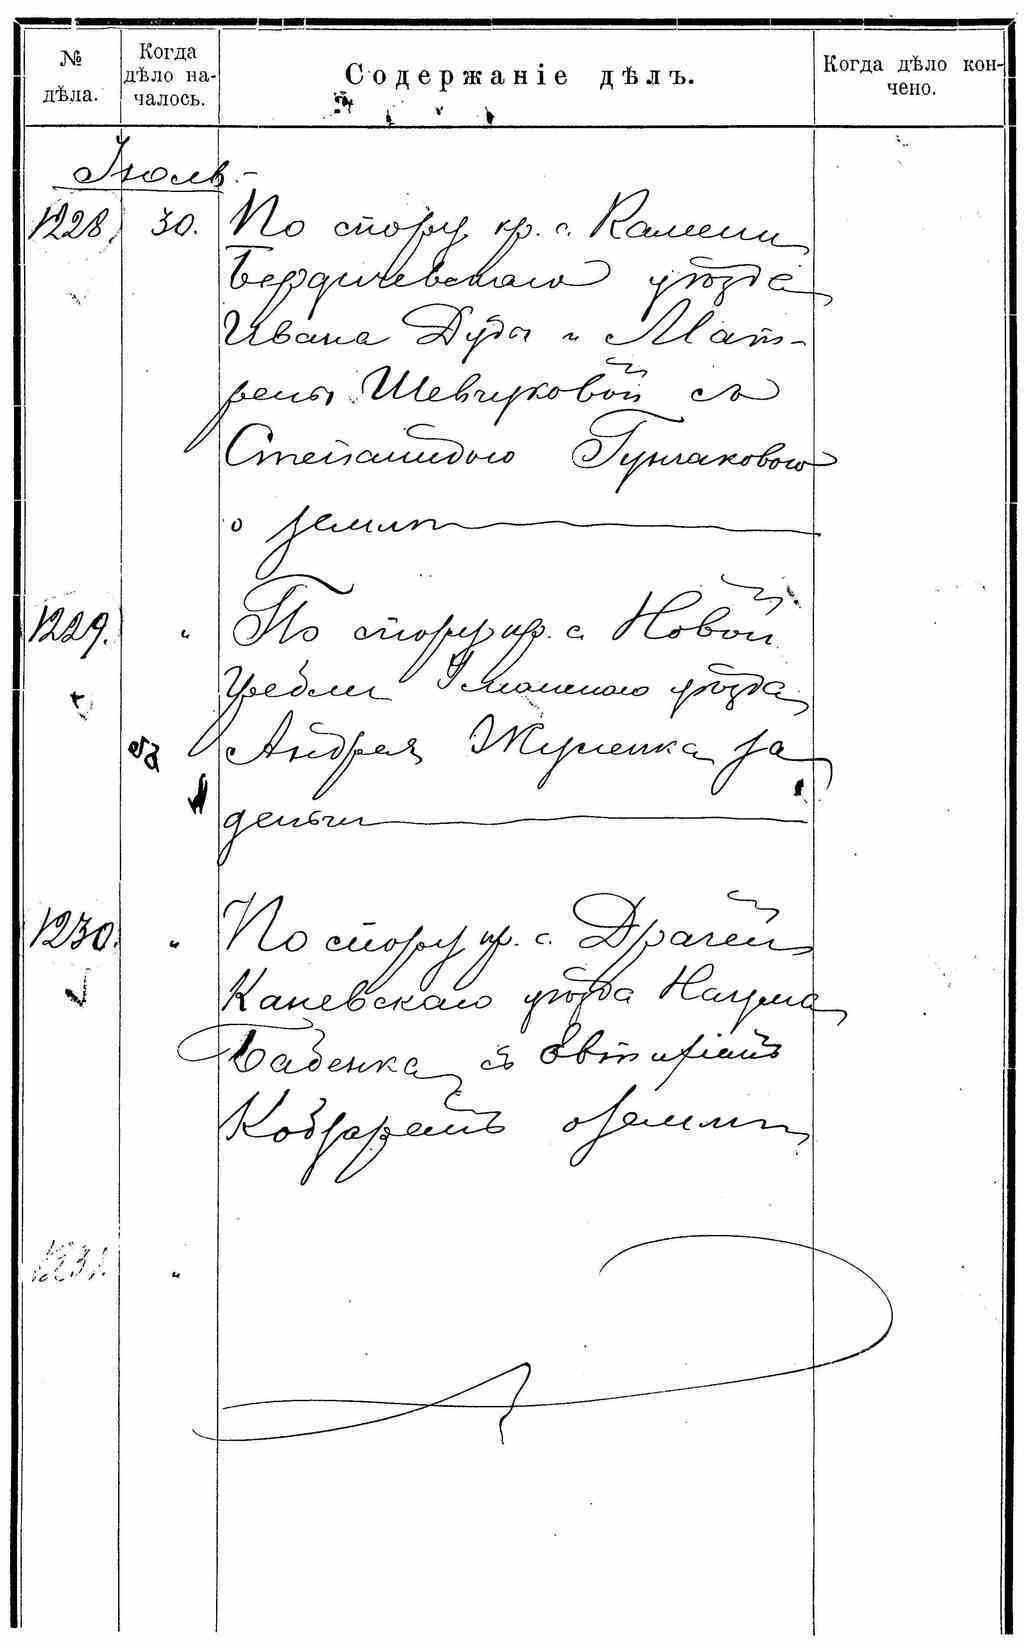 № дѣла.
Когда дѣло на-
чалось.
Содержаніе дѣлъ.
Когда дѣло кон-
чено.
Іюль
1228. 30. По спору кр. с. Камени
Бердичевскаго уѣзда
Ивана Дуды и Мат-
рены Шевчуковой съ
Степанидою Гунчаковою
о землѣ
1229. " По спору кр. с. Новой
Гребли Уманскаго уѣзда
Андрея за
деньги
1230. " По спору кр. с. Драчей
Каневскаго уѣзда Наума
Бабенка съ
Кобзаремъ о землѣ
1231. "